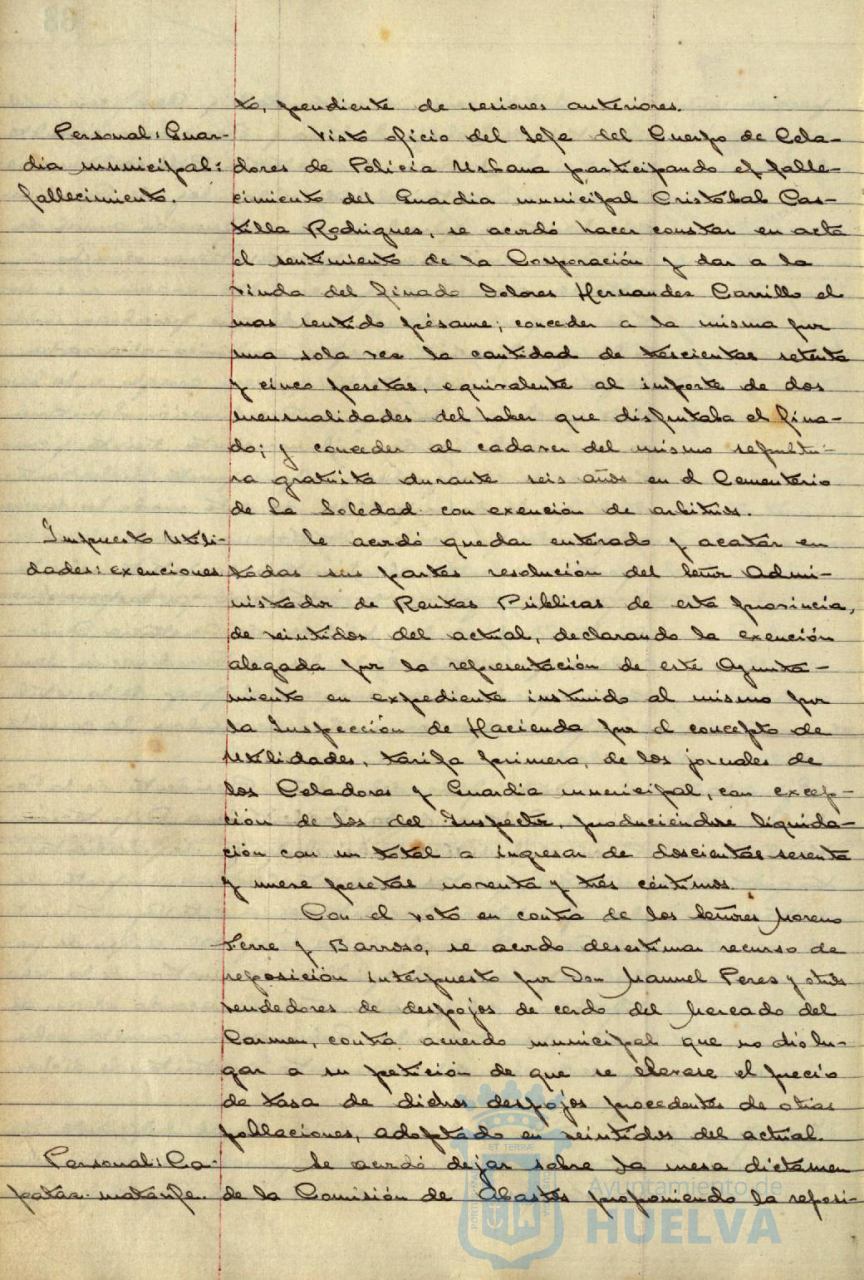 to, pendiente de sesiones anteriores.
Personal: Guar-
dia municipal:
fallecimiento.
Visto oficio del Jefe del Cuerpo de Cela-
dores de Policia Urbana participando el falle-
cimiento del Guardia municipal Cristobal Cas-
tilla Rodrigues, se acordó hacer constar en acta
el sentimiento de la Corporación y dar a la
viuda del finado Dolores Hernandez Carrillo el
mas sentido pésame; conceder a la misma por
una sola vez la cantidad de trescientas setenta
y cinco pesetas, equivalente al importe de dos
mensualidades del haber que disfrutaba el fina-
do; y conceder al cadaver del mismo sepultu-
ra gratuita durante seis años en el Cementerio
de la Soledad con exención de arbitrios.
Impuesto Utili-
dades: exenciones
Se acordó quedar enterado y acatar en
todas sus partes resolución del Señor Admi-
nistrador de Rentas Públicas de esta provincia,
de veintidos del actual, declarando la exención
alegada por la representación de este Ayunta-
miento en expediente instruido al mismo por
la Inspección de Hacienda por el concepto de
Utilidades, tarifa primera, de los jornales de
los Celadores y Guardia municipal, con excep-
ción de los del Inspector, produciéndose liquida-
ción con un total a ingresar de doscientas sesenta
y nueve pesetas noventa y tres céntimos.
Con el voto en contra de los Señores Moreno
Ferre y Barroso, se acordo desestimar recurso de
reposición interpuesto por Don Manuel Peres y otros
vendedores de despojos de cerdo del Mercado del
Carmen, contra acuerdo municipal que no dio lu-
gar a su petición de que se elevase el precio
de tasa de dichos despojos procedentes de otras
poblaciones, adoptado en veintidos del actual.
Personal: Ca-
pataz matarife.
Se acordó dejar sobre la mesa dictamen
de la Comisión de Abastos proponiendo la reposi-
Ayuntamiento de
HUELVA